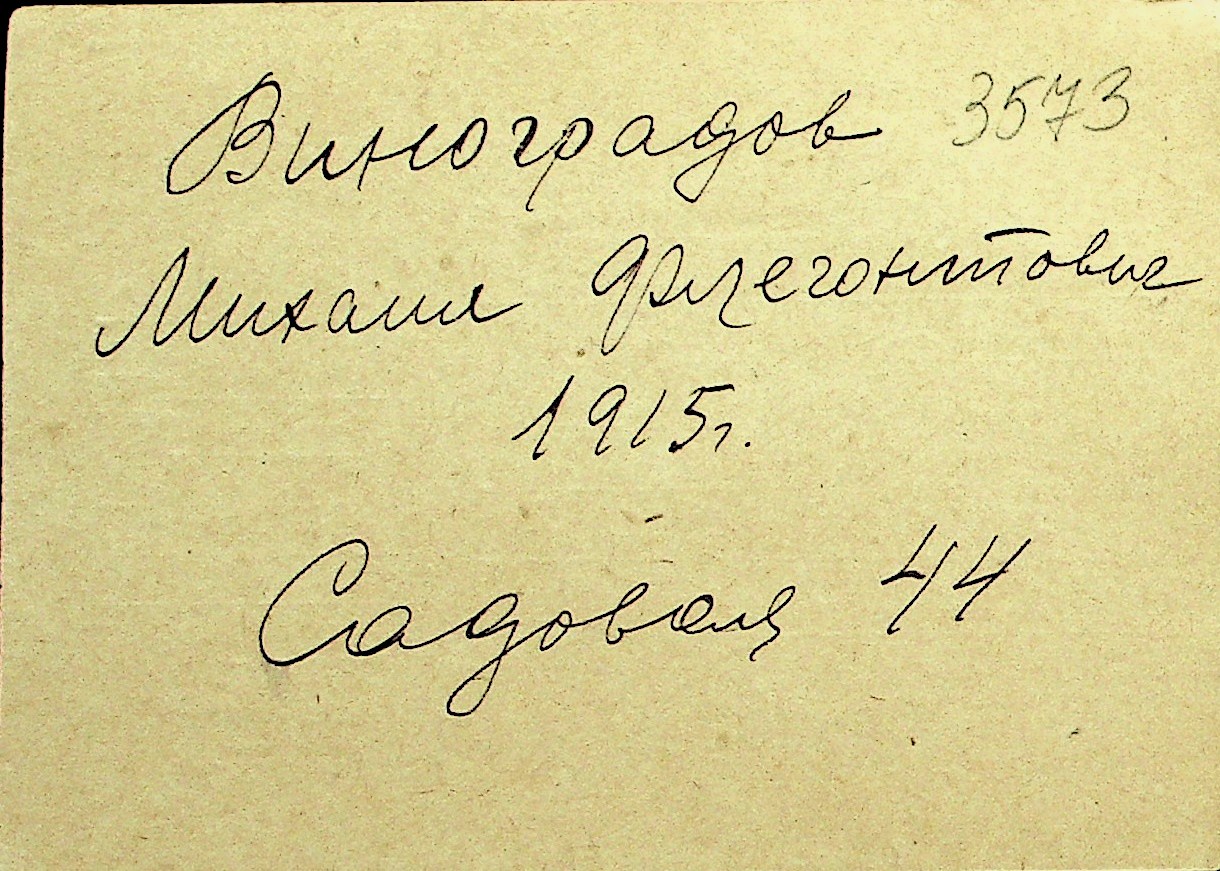 Виноградов 3573
Михаил Флегонтович
1915г.
Садовая 44